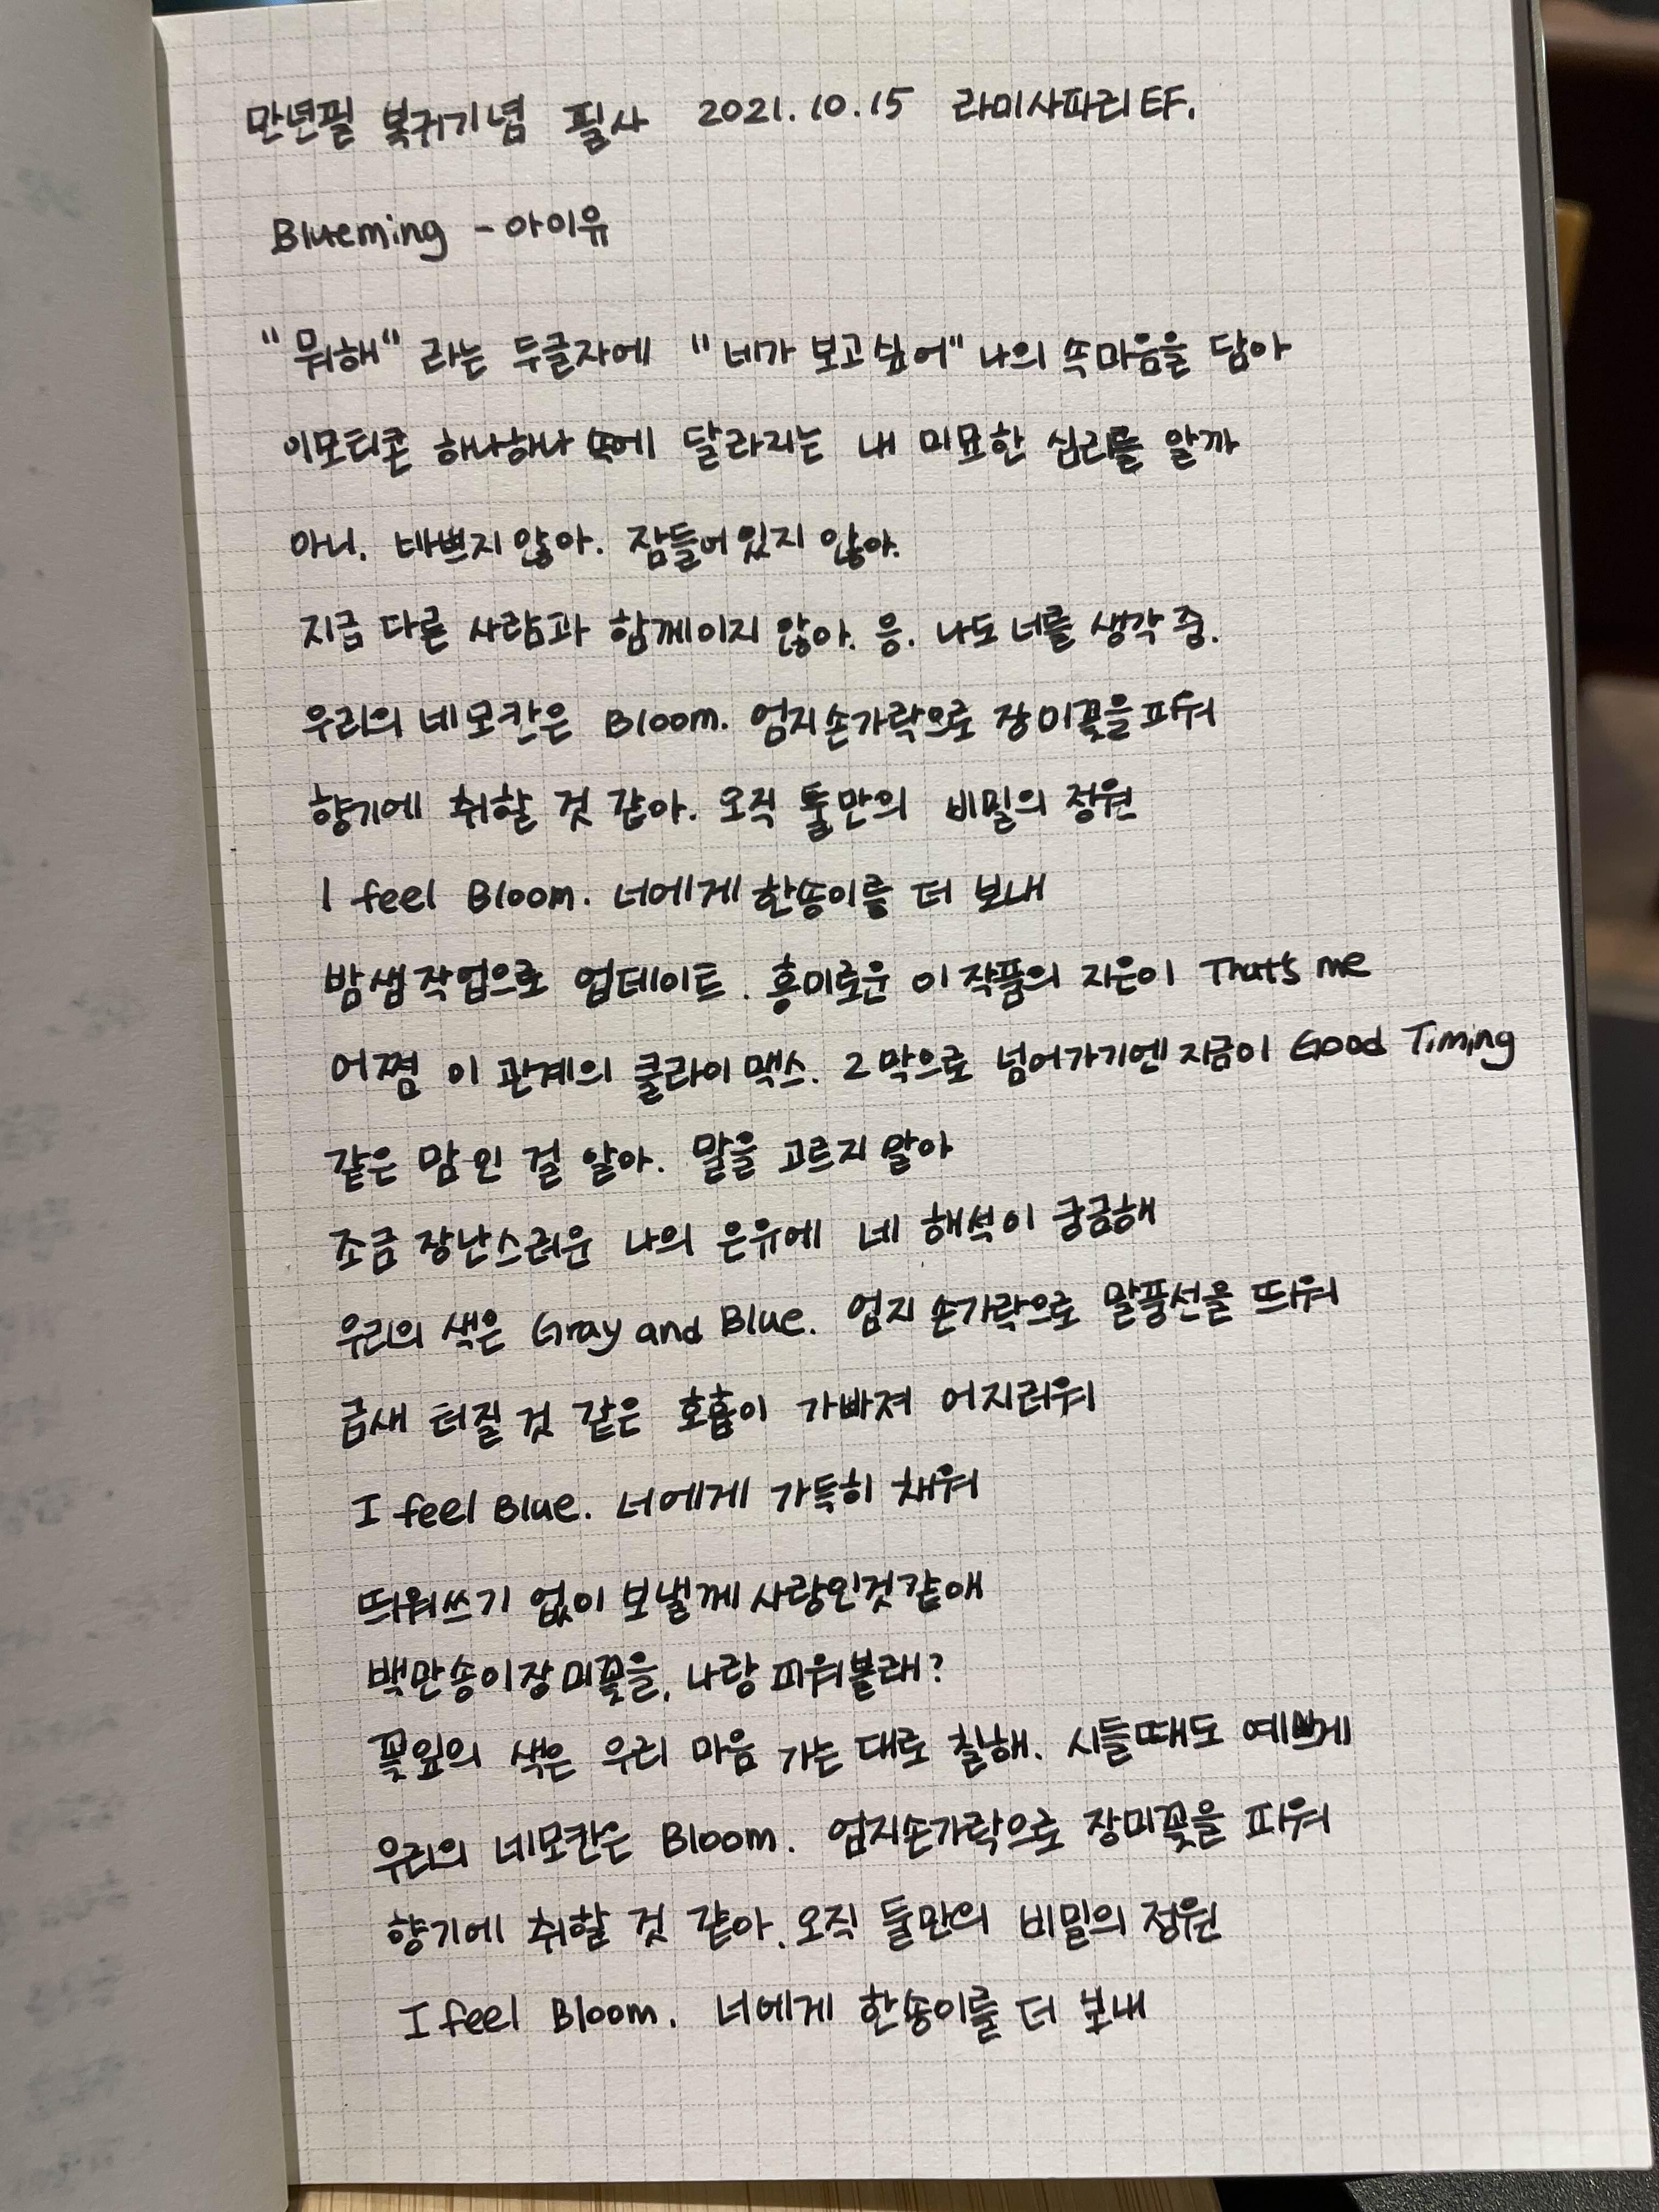 만년필 복귀기념 필사 2021.10.15 라미사파리EF.
Blueming - 아이유
"뭐해" 라는 두글자에 "네가 보고싶어" 나의 속마음을 담아
이모티콘 하나하나 속에 달라지는 내 미묘한 심리를 알까
아니. 바쁘지않아. 잠들어있지 않아.
지금 다른 사람과 함께이지 않아. 응. 나도 너를 생각 중.
우리의 네모칸은 Bloom. 엄지손가락으로 장미꽃을피워
향기에 취할 것 같아. 오직 둘만의 비밀의 정원
I feel Bloom. 너에게 한송이를 더 보내
밤샘작업으로 업데이트. 흥미로운 이 작품의 지은이 That's me
어쩜 이 관계의 클라이맥스. 2막으로 넘어가기엔 지금이 Good Timing
같은 맘인 걸 알아. 말을 고르지 말아
조금 장난스러운 나의 은유에 네 해석이 궁금해
우리의 색은 Gray and Blue. 엄지 손가락으로 말풍선을 띄워
금새 터질 것 같은 호흡이 가빠져 어지러워
I feel Blue. 너에게 가득히 채워
띄워쓰기 없이 보낼께 사랑인것같애
백만송이장미꽃을, 나랑 피워볼래?
꽃잎의 색은 우리 마음 가는 대로 칠해. 시들때도 예쁘게
우리의 네모칸은 Bloom. 엄지손가락으로 장미꽃을 피워
향기에 취할 것 같아. 오직 둘만의 비밀의 정원
I feel Bloom. 너에게 한송이를 더 보내